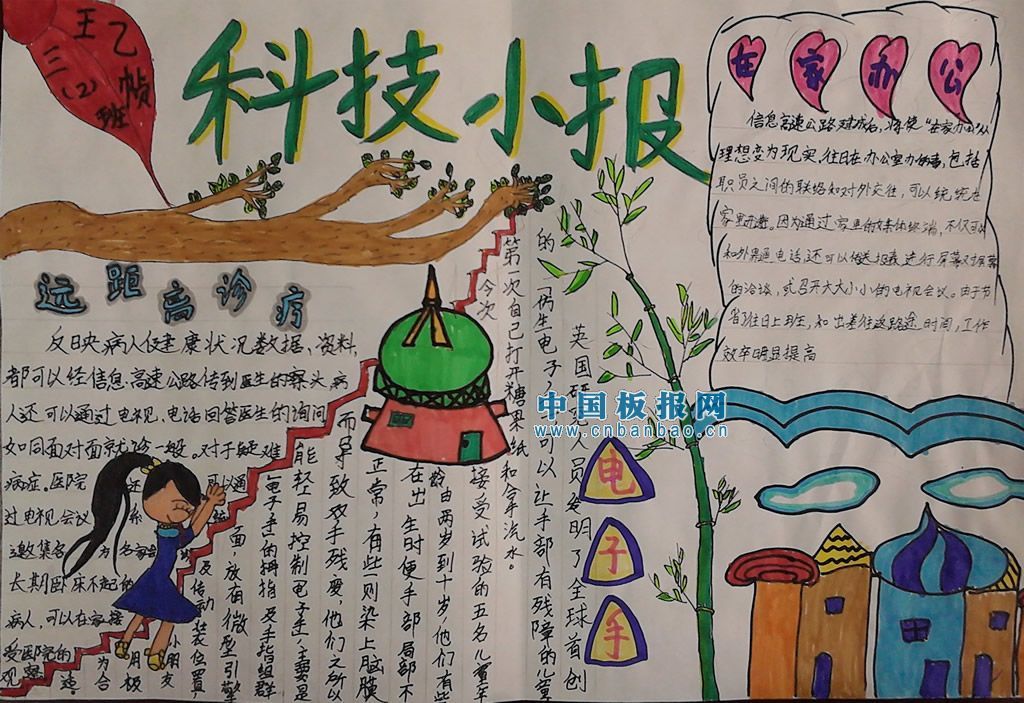 王乙帧
三(2)班
科技小报
在家办公
信息高速公路建成后,将使“在家办公”从
理想变为现实,往日在办公室办的事,包括
职员之间的联络和对外交往,可以统统在
家里进行。因为通过家里的多媒体终端,不仅可以
和外界通电话还可以传送报表进行屏幕对屏幕
的洽谈,或召开大大小小的电视会议。由于节
省了往日上班,和出差往返路途时间,工作
效率明显提高
远距离诊疗
反映病人健康状况数据、资料,
都可以经信息高速公路传到医生的案头,病
人还可以通过电视、电话回答医生的询问
如同面对面就诊一般。对于疑难
病症。医院还可以通
过电视会议系
邀集名为名家
长期卧床不起的
病人,可以在家接
受医院的
观察
电子手
英国研究人员发明了全球首创
的“仿生电子手”可以让手部有残障的儿童
第一次自己打开糖果纸和拿手流水。
今次接受试验的五名儿童年
龄由两岁到十岁,他们有些
在出生时便手部局部不
正常,有些则染上脑膜
而导致双手残废,他们之所以
能轻易控制电子手,主要是
电子手的拇指及手指组群
面,放有微型引擎
及传动装位置
小朋友
中国板报网
www.cnbanbao.cn